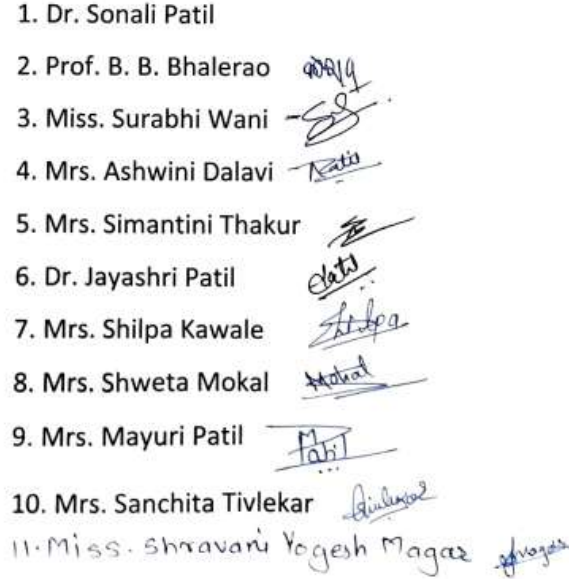 1. Dr. Sonali Patil
2. Prof. B. B. Bhalerao
3. Miss. Surabhi Wani
4. Mrs. Ashwini Dalavi
5. Mrs. Simantini Thakur
6. Dr. Jayashri Patil Patil
7. Mrs. Shilpa Kawale Shilpa
8. Mrs. Shweta Mokal Mokal
9. Mrs. Mayuri Patil MPatil
10. Mrs. Sanchita Tivlekar
11. Miss. Shravani Yogesh Magar